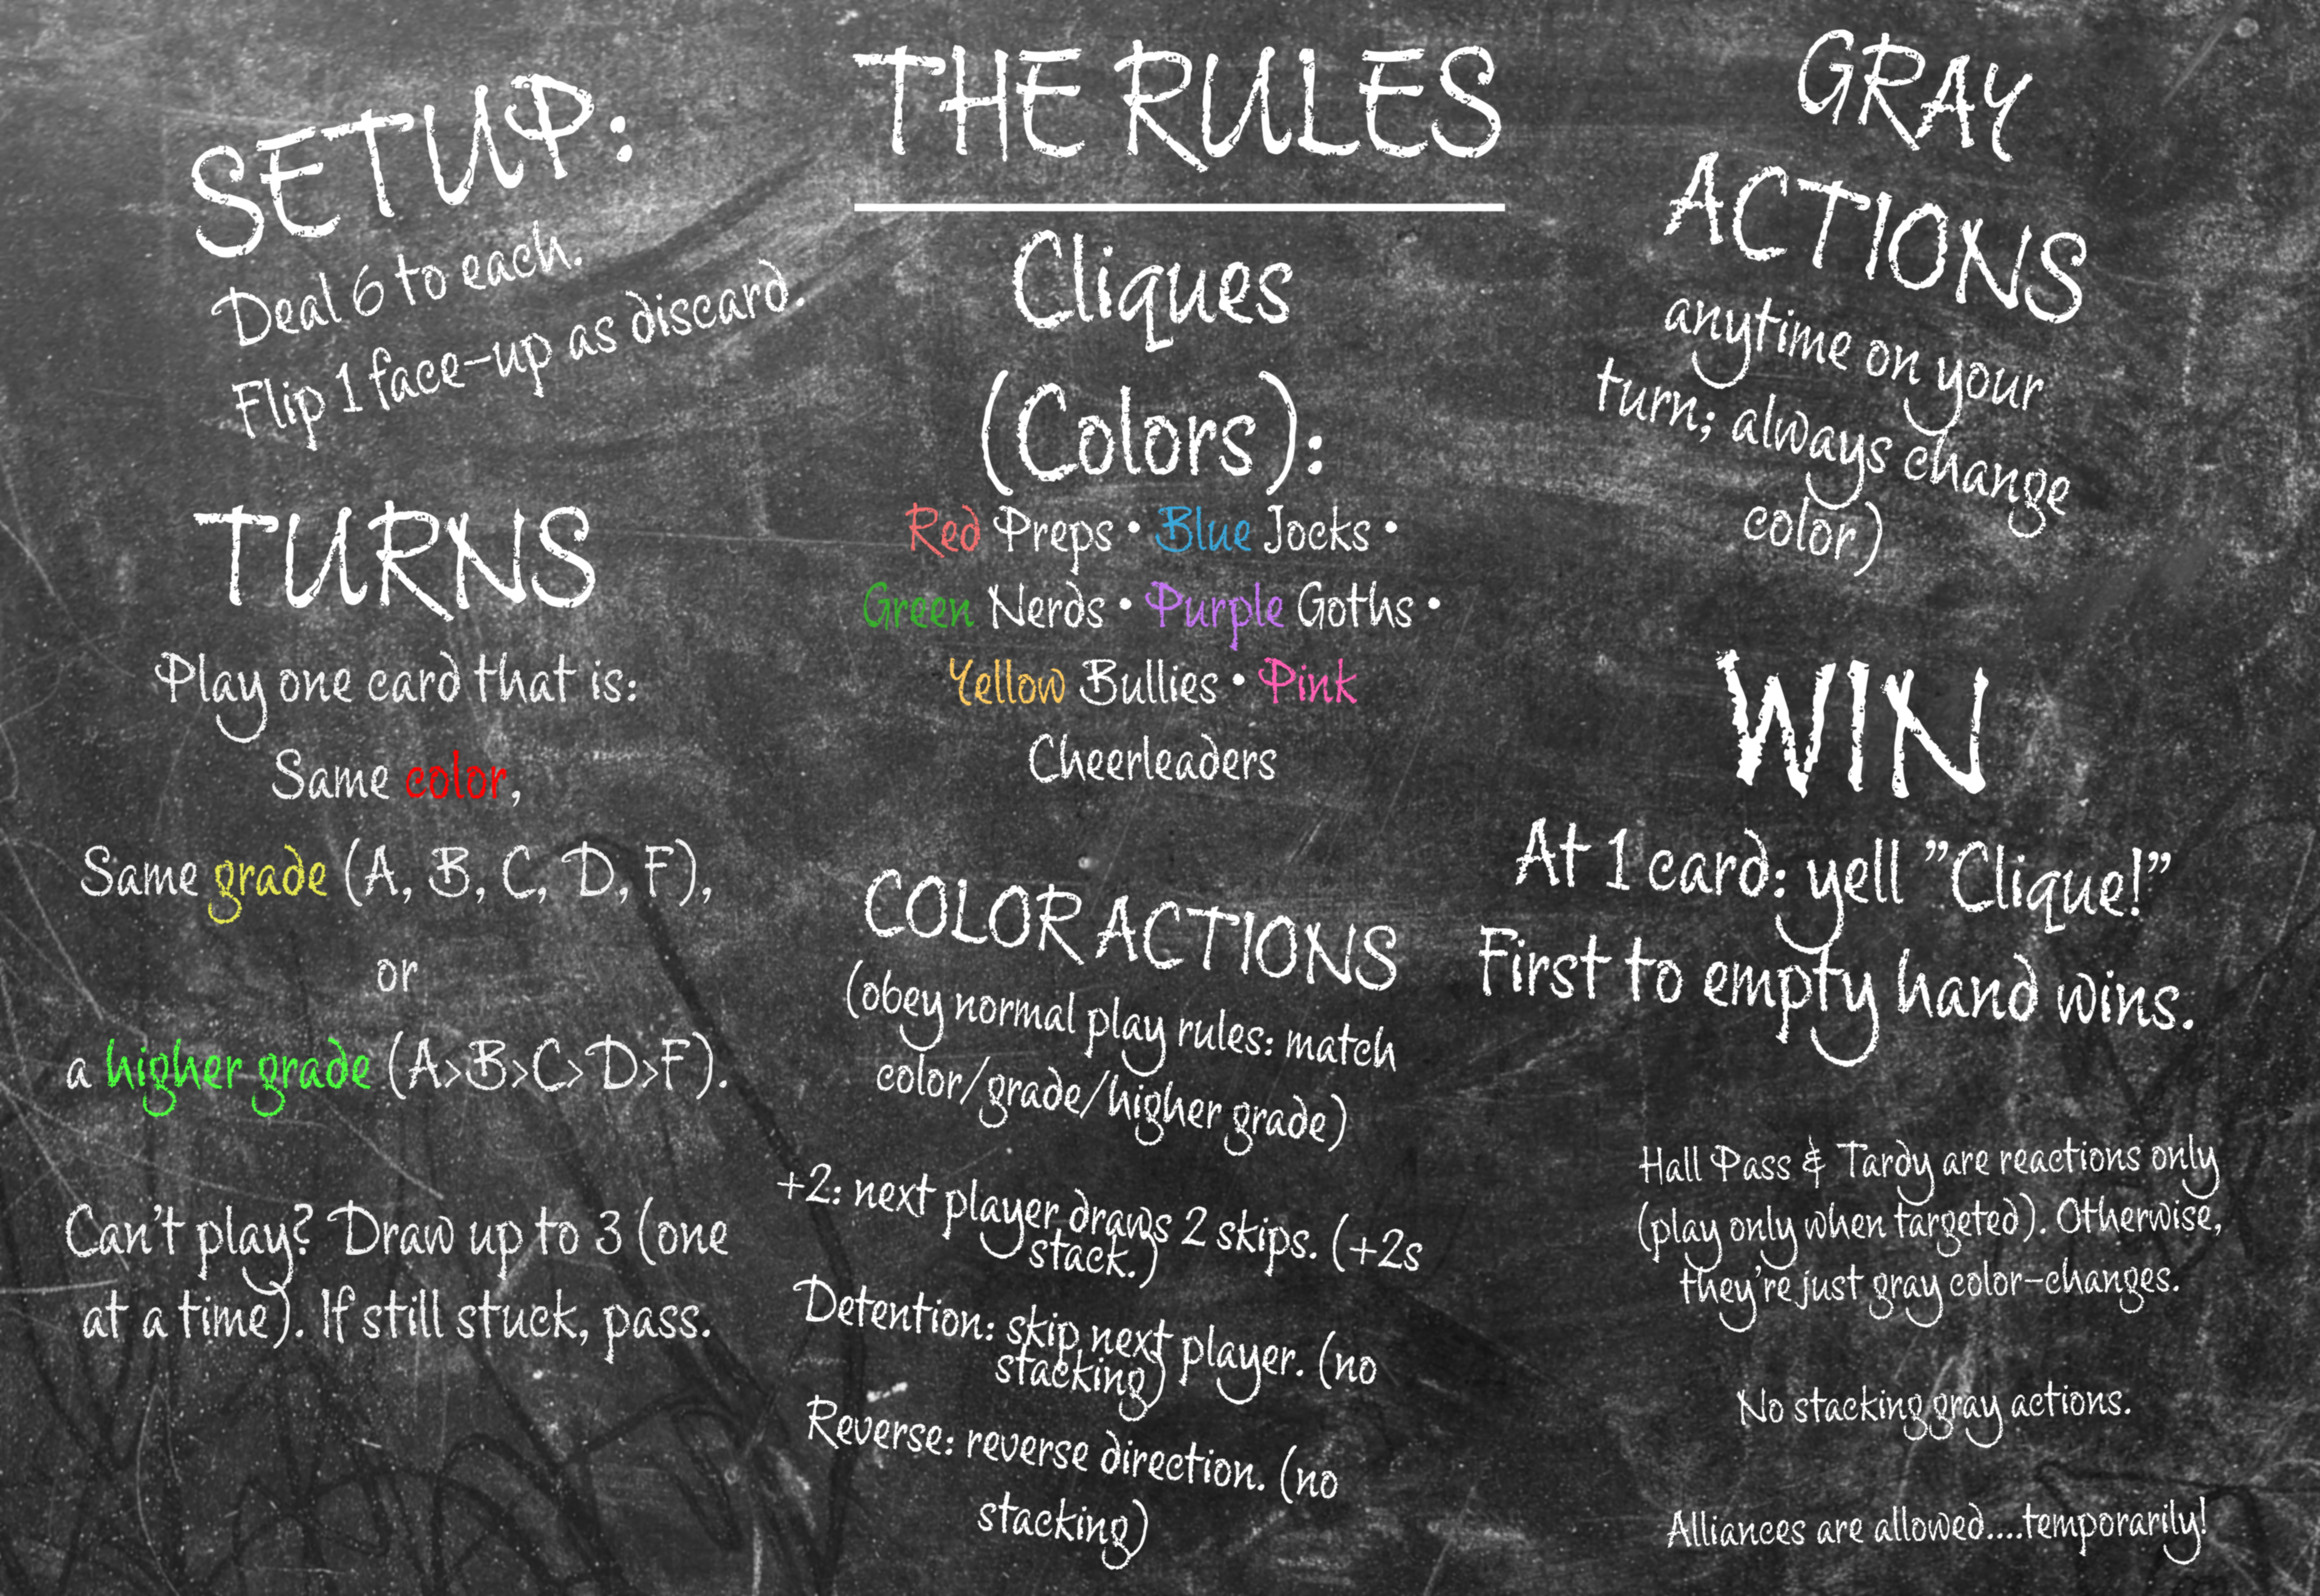 THE RULES
SETUP:
Deal 6 to each.
Flip 1 face-up as discard.
TURNS
Play one card that is:
Same color,
Same grade (A, B, C, D, F),
or
a higher grade (A>B>C>D>F).
Can't play? Draw up to 3 (one
at a time). If still stuck, pass.
Cliques
(Colors):
Red Preps • Blue Jocks •
Green Nerds • Purple Goths •
Yellow Bullies • Pink
Cheerleaders
COLOR ACTIONS
(obey normal play rules: match
color/grade/higher grade)
+2: next player draws 2 skips. (+2s
stack.)
Detention: skip next player. (no
stacking)
Reverse: reverse direction. (no
stacking)
GRAY
ACTIONS
anytime on your
turn; always change
color)
WIN
At 1 card: yell "Clique!"
First to empty hand wins.
Hall Pass & Tardy are reactions only
(play only when targeted). Otherwise,
they're just gray color-changes.
No stacking gray actions.
Alliances are allowed....temporarily!